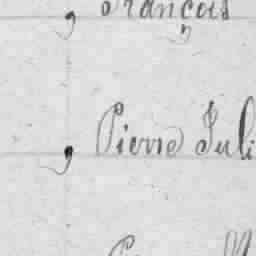 François
"
, Pierre Juli